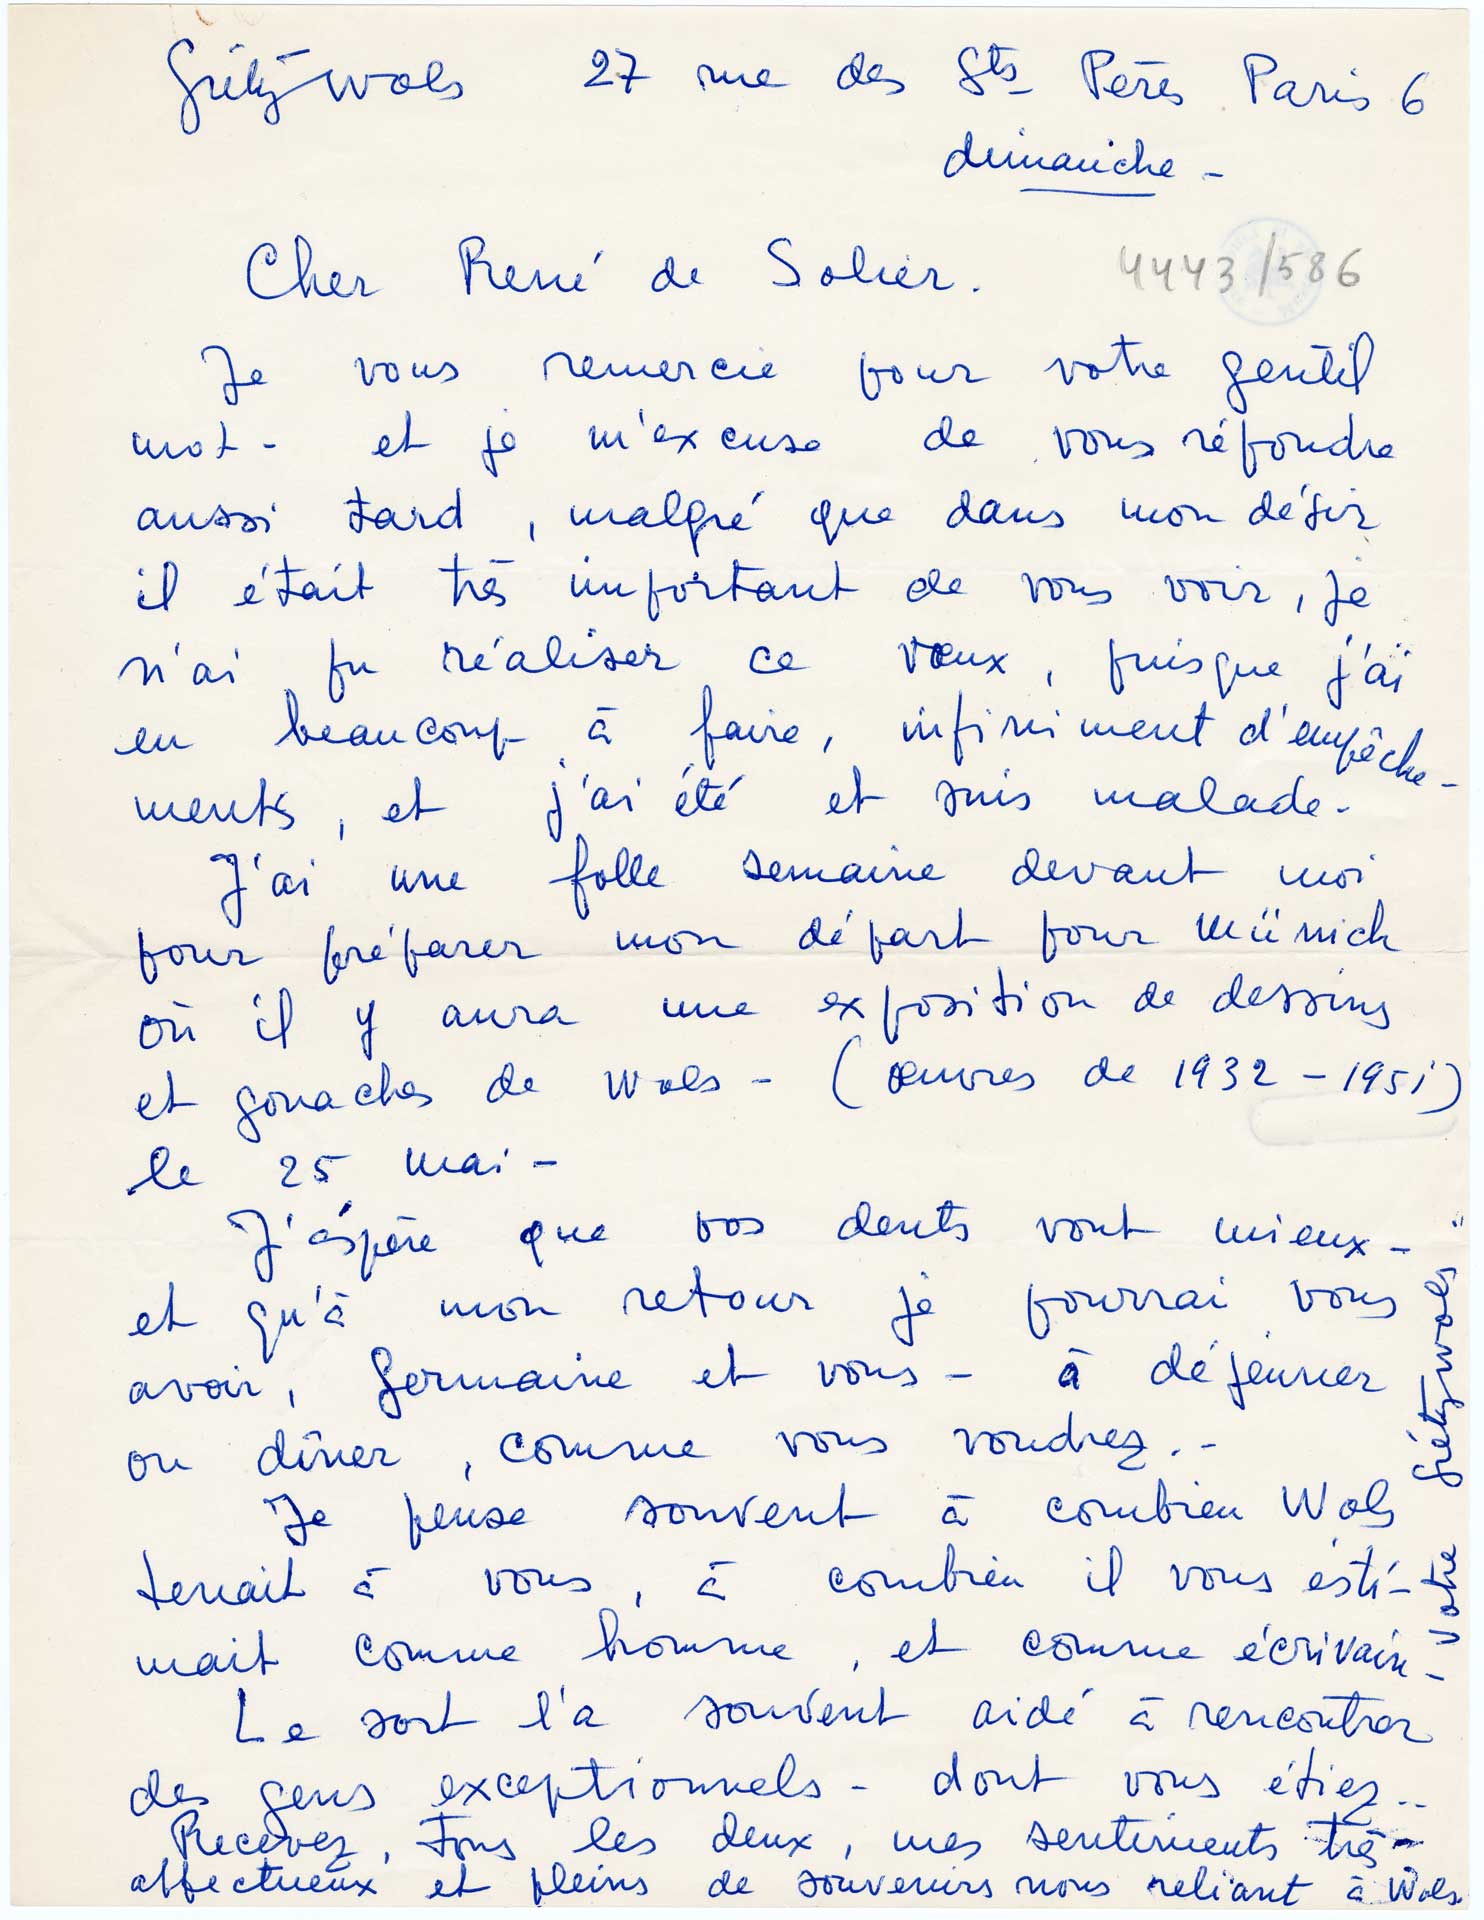 Gréty Wols 27 rue des Sts Pères Paris 6
dimanche -
Cher René de Solier.
4443/586
Je vous remercie pour votre gentil
mot - et je m'excuse de vous répondre
aussi tard, malgré que dans mon désir
il était très important de vous voir, je
n'ai pu réaliser ce vœux, puisque j'ai
eu beaucoup à faire, infiniment d'empêche-
ments, et j'ai été et suis malade.
J'ai une folle semaine devant moi
pour préparer mon départ pour Münich
où il y aura une exposition de dessins
et gouaches de Wols - (œuvres de 1932 - 1951)
le 25 mai -
J'éspère que vos dents vont mieux -
et qu'à mon retour je pourrai vous
avoir, Germaine et vous - à déjeuner
ou dîner, comme vous voudrez. -
Je pense souvent à combien Wols
tenait à vous, à combien il vous esti-
mait comme homme, et comme écrivain -
Le sort l'a souvent aidé à rencontrer
des gens exceptionnels - dont vous étiez..
Recevez, tous les deux, mes sentiments très
affectueux et pleins de souvenirs nous reliant à Wols.
Votre Gréty Wols